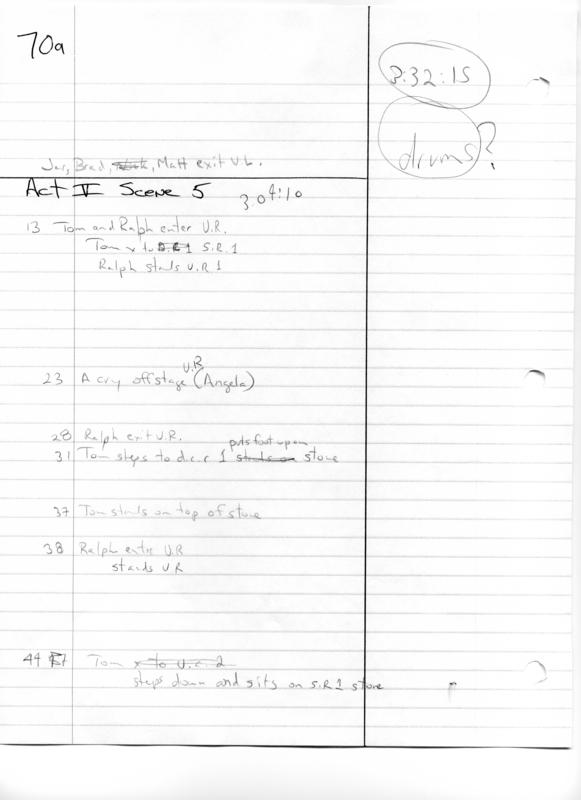 70a
3:32:15
drums?
Jar, Brad, Matt exit U.L.
Act V Scene 5 3:04:10
13 Tom and Ralph enter U.R.
Tom x to D.R.1 S.R.1
Ralph stands U.R 1
U.R
23 A cry offstage (Angela)
28 Ralph exit U.R.
puts foot upon
31 Tom steps to d.c.c 1 stands on stone
37 Tom stands on top of stone
38 Ralph enters U.R
stands UR
44 Tom x to U.C. 2
steps down and sits on S.R 1 stone